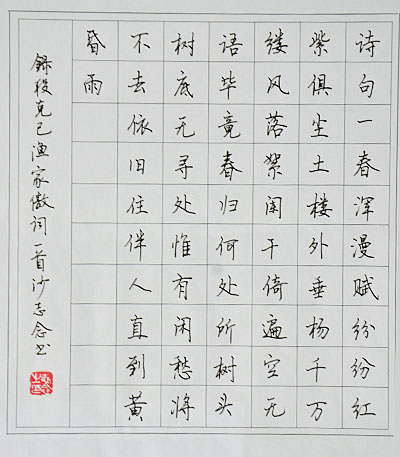 诗句一春浑漫赋纷纷红
紫俱尘土楼外垂杨千万
缕风落絮阑干倚遍空无
语毕竟春归何处所树头
树底无寻处惟有闲愁将
不去依旧住伴人直到黄
昏雨
録段克己渔家傲词一首沙志念书